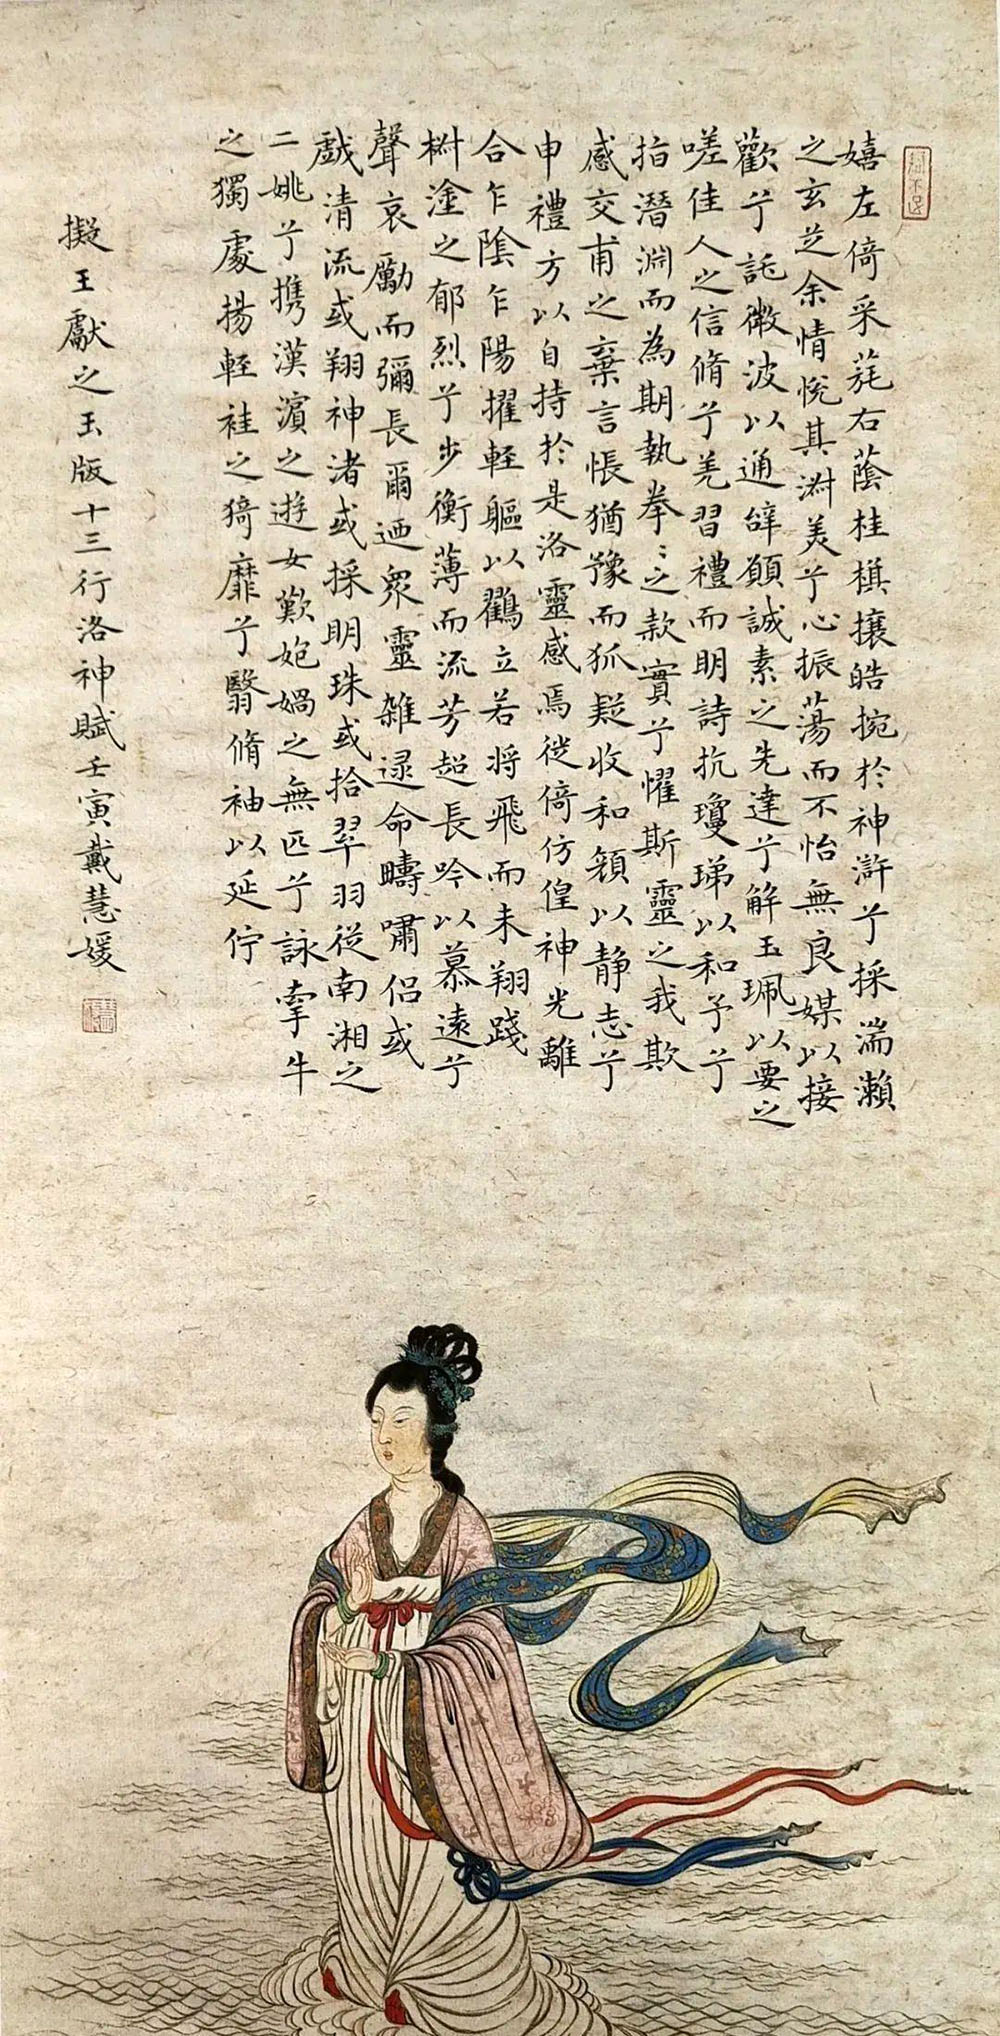 嬉左倚采旄右蔭桂棋攘皓捥於神滸兮採湍瀨
之玄芝余情悅其淑美兮心振蕩而不怡無良媒以接
歡兮託微波以通辝願誠素之先達兮解玉珮以要之
嗟佳人之信脩兮羌習禮而明詩抗瓊珶以和予兮
指潛淵而為期執拳〻之款實兮懼斯靈之我欺
感交甫之棄言悵猶豫而狐疑收和顏以静志兮
申禮方以自持於是洛靈感焉徙倚仿偟神光離
合乍陰乍陽擢輕軀以鸖立若將飛而未翔踐
椒塗之郁烈兮步衡薄而流芳超長吟以慕遠兮
聲哀勵而彌長爾迺衆靈雜遝命疇嘯侶或
戲清流或翔神渚或採明珠或拾翠羽從南湘之
二姚兮携漢濵之遊女歎㚿媧之無匹兮詠牽牛
之獨處揚輕袿之猗靡兮翳脩袖以延佇
擬王獻之玉版十三行洛神賦壬寅戴慧媛